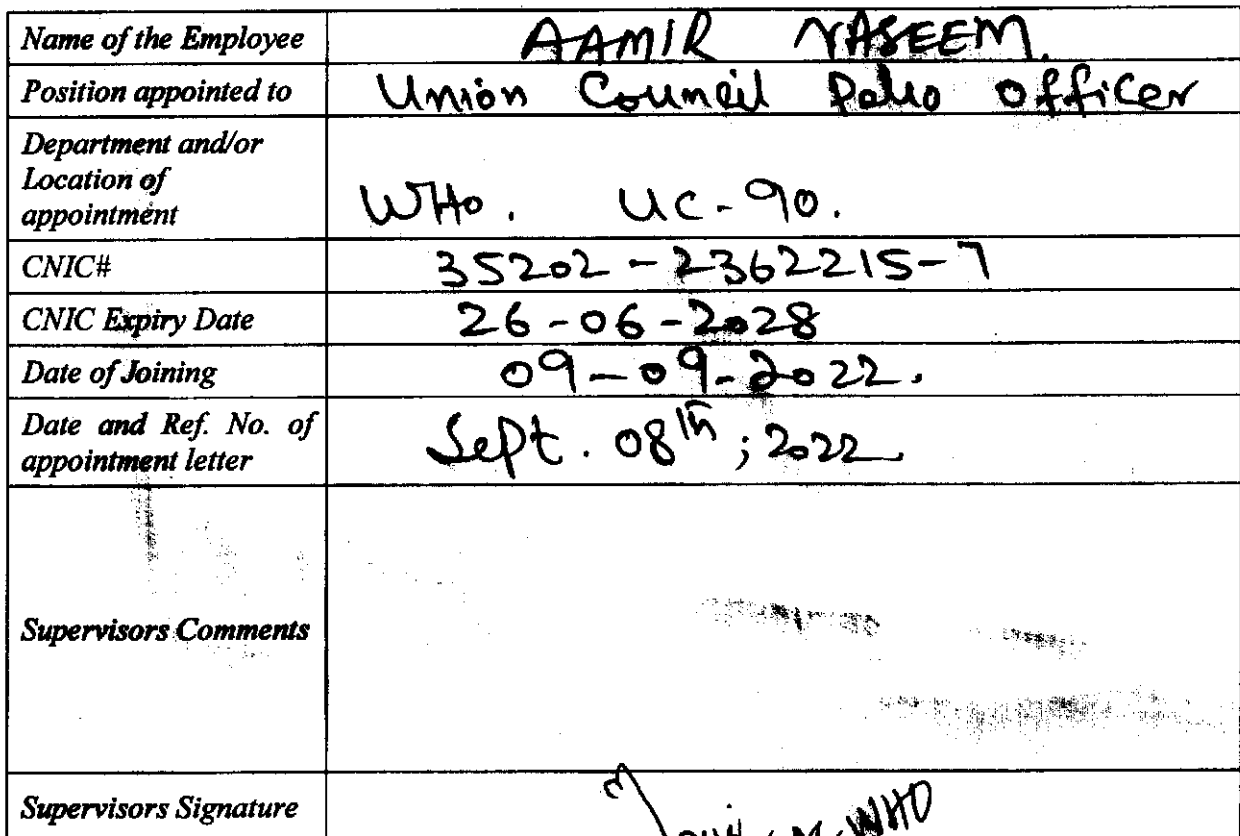 Name of the Employee AAMIR NASEEM.
Position appointed to Union Council Polio Officer
Department and/or
Location of
appointment WHO. UC-90.
CNIC# 35202-2362215-7
CNIC Expiry Date 26-06-2028
Date of Joining 09-09-2022.
Date and Ref. No. of
appointment letter Sept. 08th; 2022
Supervisors Comments
Supervisors Signature WHO